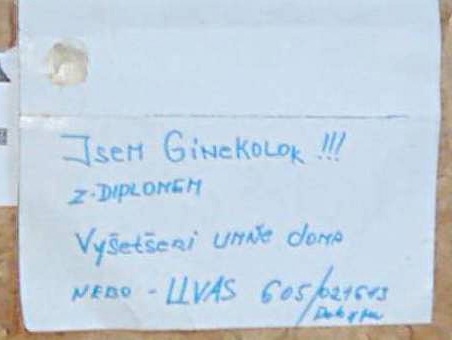 Jsem Ginekolok !!!
z-DIPLOMEM
Vyšetšeni UMNĚ doma
NEBO - UVÁS 605/